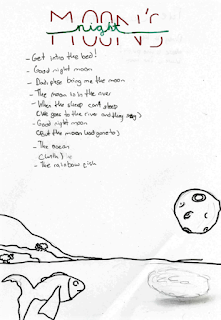 MOON'S
night
- Get into the bed!
- Good night moon
- Dad, plese bring me the moon
- The moon is in the river
- When the sheep can't sleep
(We goes to the river and they)
- Good night moon
(But the moon had gone to)
- The ocean
(with)
- The rainbow fish